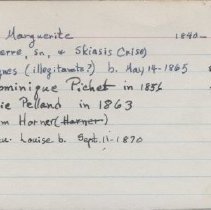 Marguerite 1840-
erre, sn, & Skiasis (Crise)
ques (illegitamate?) b. May 14-1865
ominique Pichet in 1856
ie Pelland in 1863
m Horner (Harner)
u. Louise b. Sept. 11-1870